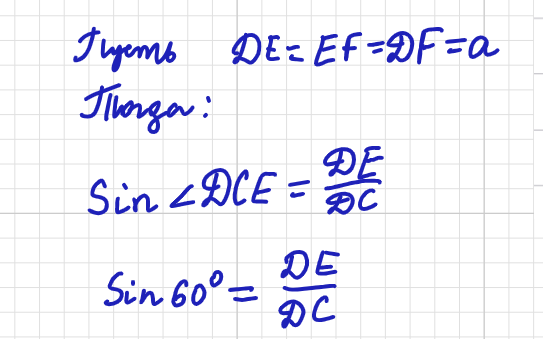 Пусть DE = EF = DF = a
Тогда:
Sin ∠DCE = DE/DC
Sin 60° = DE/DC